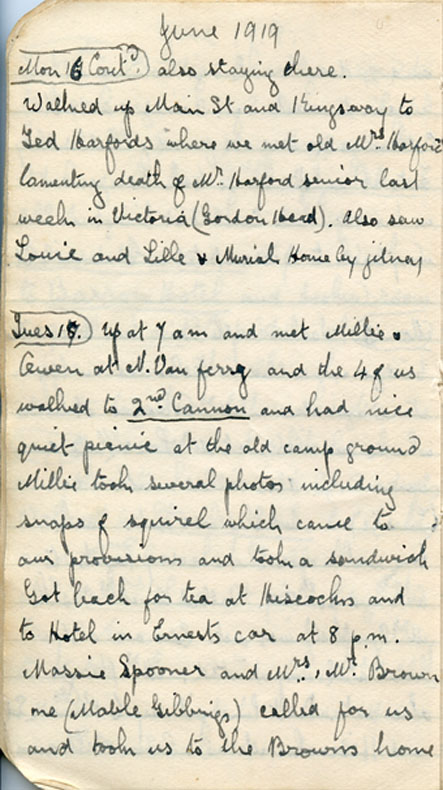 June 1919
Mon 16 Cont'd. also staying there.
Walked up Main St and Kingsway to
Ted Harfords where we met old Mrs Harford
lamenting death of Mr. Harford senior last
week in Victoria (Gordon Head). Also saw
Louie and Lille & Muriel. Home by jitney
Tues 17. Up at 7 am and met Millie &
Gwen at N. Van ferry and the 4 of us
walked to 2nd. Cannon and had nice
quiet picnic at the old camp ground
Millie took several photos including
snaps of squirel which came to
our provisions and took a sandwich
Got back for tea at Hiscocks and
to Hotel in Ernests car at 8 p.m.
Massie Spooner and Mrs, Mr. Brown
me (Mable Gibbings) called for us
and took us to the Browns home